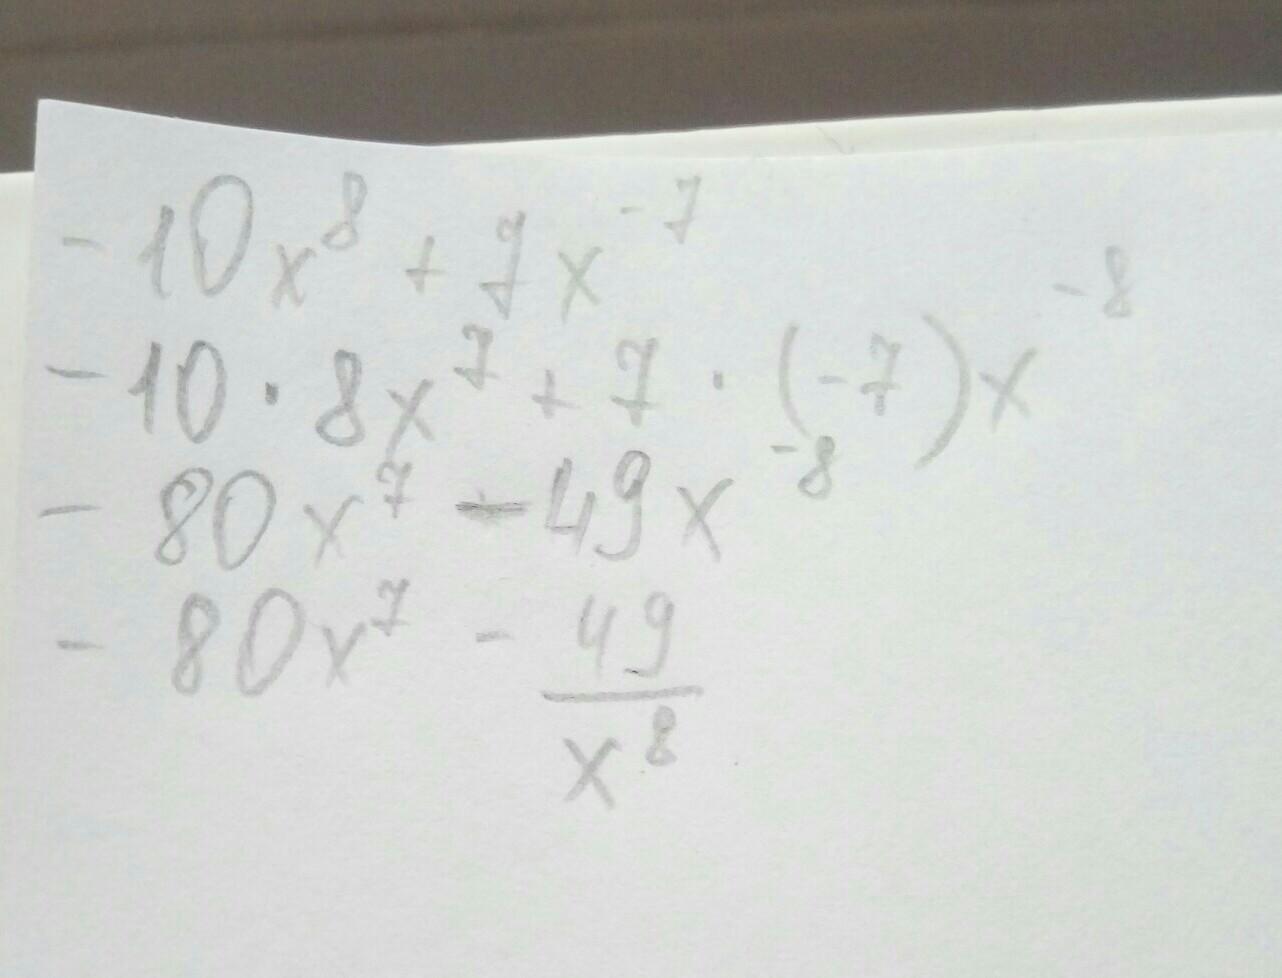 -10x⁸ + 7x⁻⁷
-10 · 8x⁷ + 7 · (-7)x⁻⁸
- 80x⁷ - 49x⁻⁸
- 80x⁷ - 49/x⁸